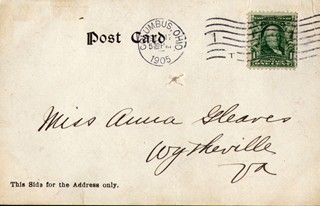 Post Card
COLUMBUS, OHIO
1905
1
Miss Anna Gleaves
Wytheville
Va
This Side for the Address only.